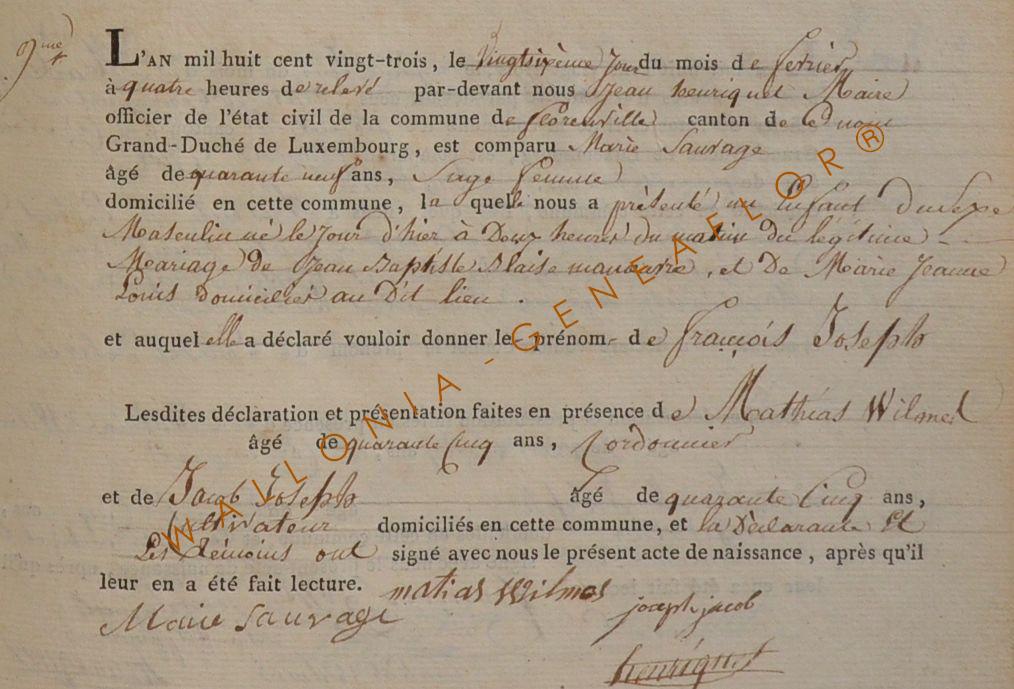 9me
L'AN mil huit cent vingt-trois, le Vingtsixème Jour du mois de fevrier
à quatre heures de relevé par-devant nous Jean henriquet Maire
officier de l'état civil de la commune de florenville canton de ce nom
Grand-Duché de Luxembourg, est comparu Marie Sauvage
âgé de quarante neuf ans, Sage femme
domicilié en cette commune, la quelle nous a présenté un Enfant du Sexe
Masculin né le Jour d'hier à Deux heures du matin du legitime
Mariage de Jean Baptiste Blaise manoeuvre, et De Marie Jeanne
Louis Domiciliés au Dit lieu.
et auquel elle a déclaré vouloir donner le prénom de françois Joseph
Lesdites déclaration et présentation faites en présence de Mathias Wilmet
âgé de quarante Cinq ans, Cordonnier
et de Jacob Joseph âgé de quarante Cinq ans,
Cultivateur domiciliés en cette commune, et la Déclarante Et
Les témoins ont signé avec nous le présent acte de naissance, après qu'il
leur en a été fait lecture. matias Wilmes
Marie Sauvage joseph jacob
henriquet
WALLONIA - GENEAFLOR®